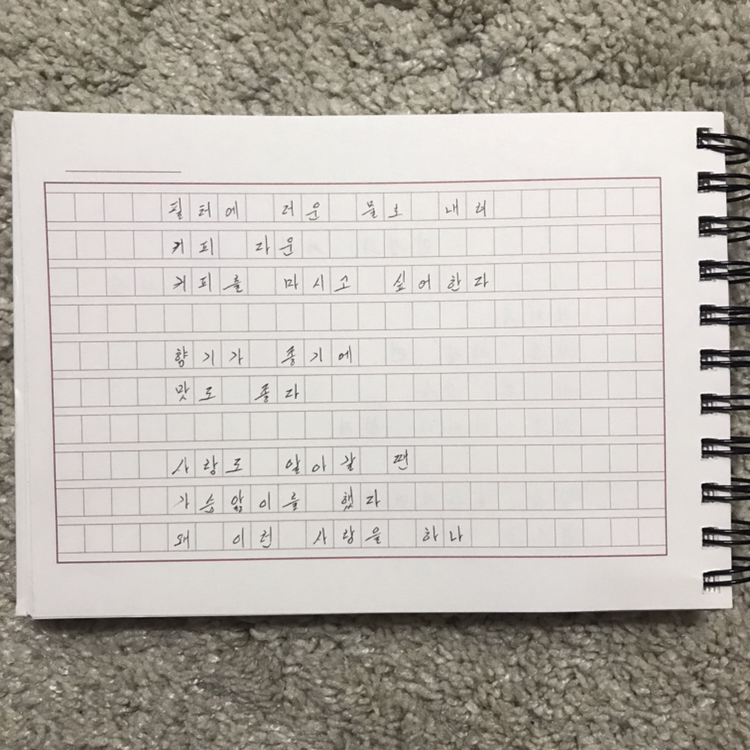 필터에 더운 물로 내려
커피 다운
커피를 마시고 싶어한다
향기가 좋기에
맛도 좋다
사랑도 알아갈 땐
가슴앓이를 했다
왜 이런 사랑을 하나